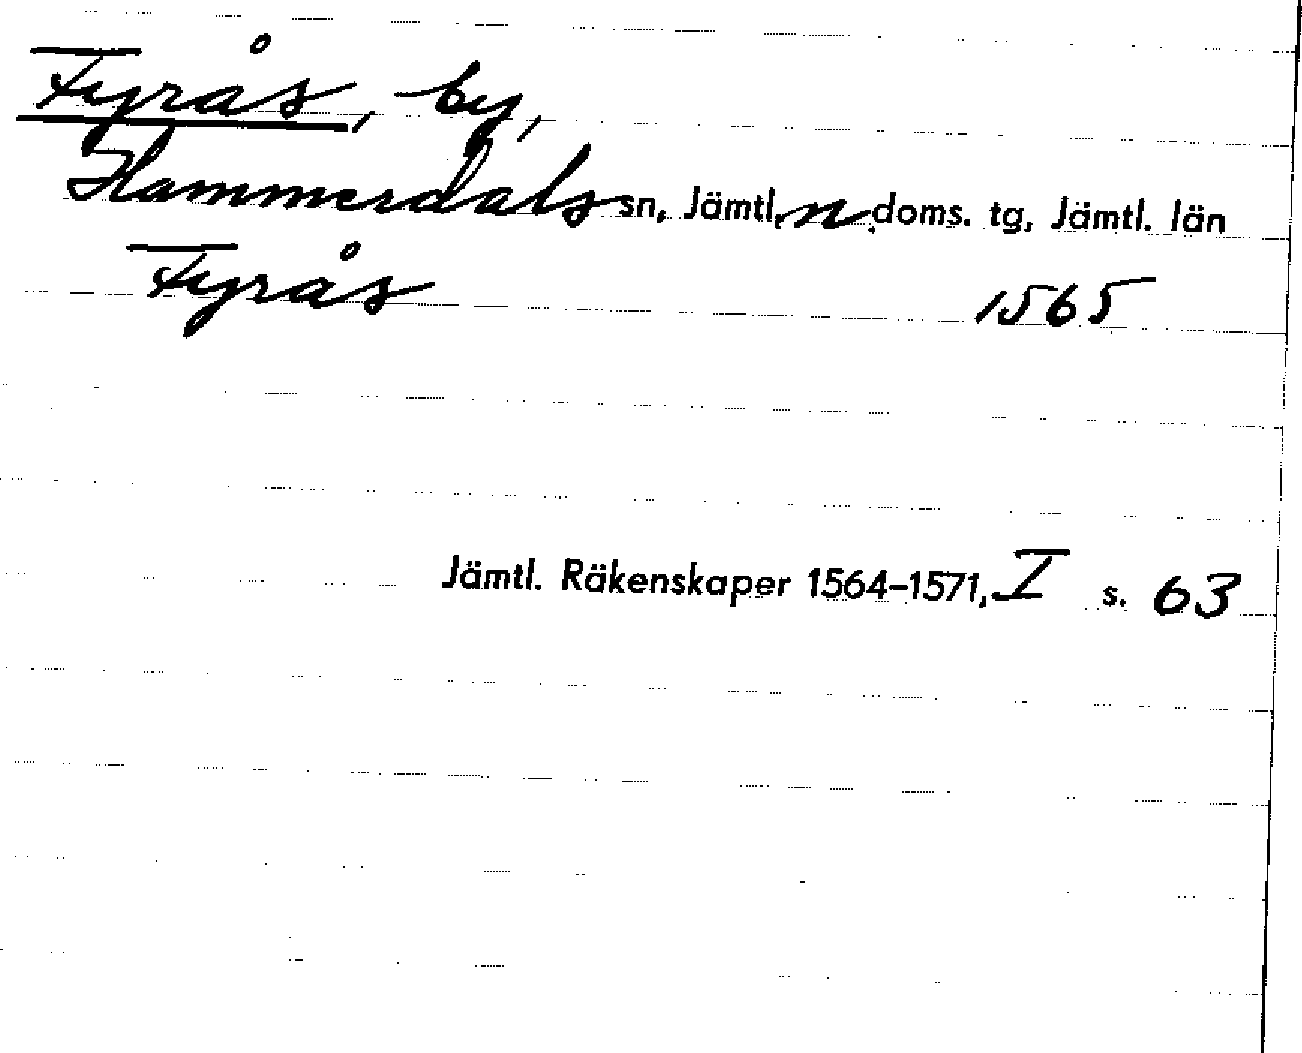 Fyrås, by,
Hammerdals sn, Jämtl. n doms. tg, Jämtl. län
Fyrås 1565
Jämtl. Räkenskaper 1564-1571, I s. 63